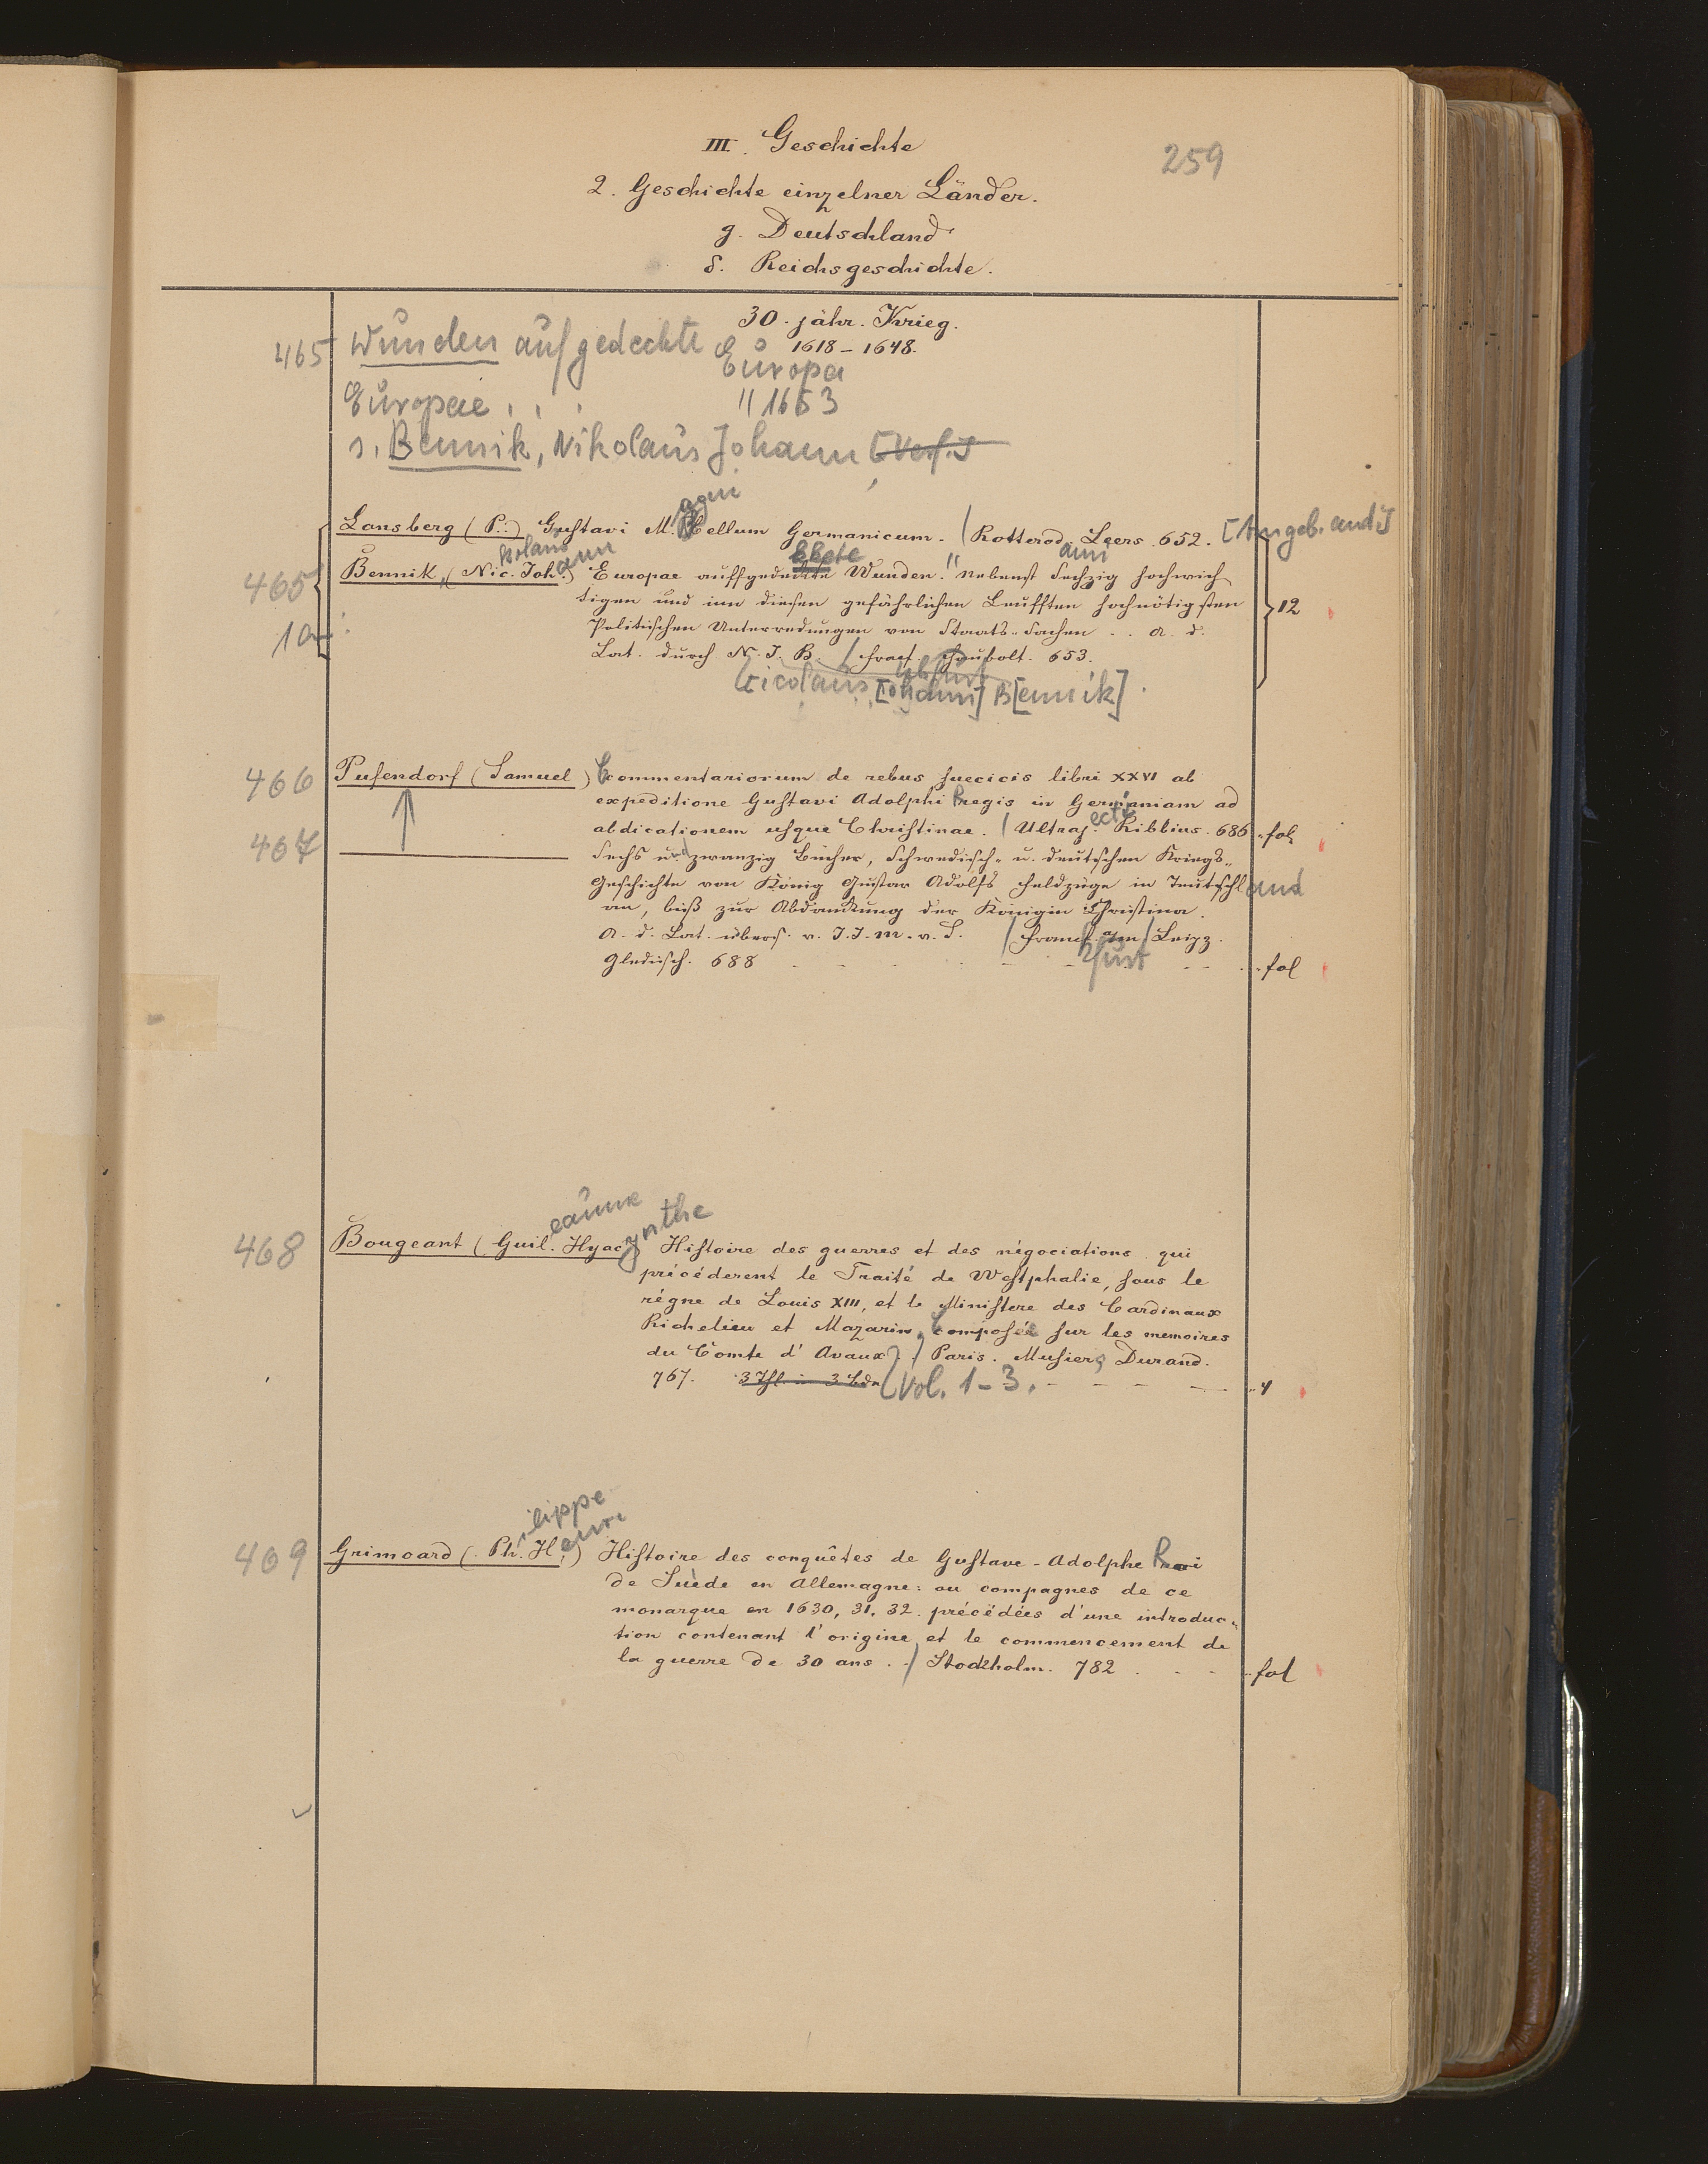 III. Geschichte
259
2. Geschichte einzelner Länder.
g. Deutschland
δ. Reichsgeschichte.
30. jähr. Krieg.
1618 – 1648.
465 Wunden aufgedeckte Europa
Europae . . . " 1653
s. Bennik, Nikolaus Johann [Verf.]
Lansberg (P..) Gustavi M.agni Bellum Germanicum. / Rotterod.ami Leers. 652. [Angeb. and]
465 Bennik, (Nic.olaus Joh.ann) Europae auffgedeckte Wunden. " Nebenst Sechzig hochwich
tigen und inn diesen gefährlichen Leufften hochnötigsten 12
1an: Politischen Unterredungen von Staats-Sachen .. a. d.
Lat. durch N. J. B. / Fracf. Schubolt. 653.
N[icolaus] J[ohann] B[ennik].
466 Pufendorf (Samuel) Commentariorum de rebus suecicis libri XXVI ab
expeditione Gustavi Adolphi Regis in Germaniam ad
abdicationem usque Christinae. / Ultraj.ecti Ribbius. 686 fol.
467 ——— Sechs und zwanzig Bücher, Schwedisch- u. deutschen Kriegs-
Geschichte von König Gustav Adolfs Feldzüge in Teutschland
an, biß zur Abdankung der Königin Christina.
A. d. Lat. übers. v. J. J. M. v. S. / Francf.furt am / Leipz.
Gleditsch. 688 fol
468 Bougeant (Guil.eaume Hyacynthe) Histoire des guerres et des négociations qui
précéderent le Traité de Westphalie, sous le
régne de Louis XIII, et le Ministere des Cardinaux
Richelieu et Mazarin, Composée sur les memoires
du Comte d'Avaux). / Paris. Musier, Durand.
767. 3 Thl. in 3 Bdn (Vol. 1-3. 4
469 Grimoard (Ph.ilippe H.enri) Histoire des conquêtes de Gustave-Adolphe Roi
de Suède en Allemagne: ou compagnes de ce
monarque en 1630, 31, 32. précédées d'une introduc-
tion contenant l'origine et le commencement de
la guerre de 30 ans . . / Stockholm. 782 fol